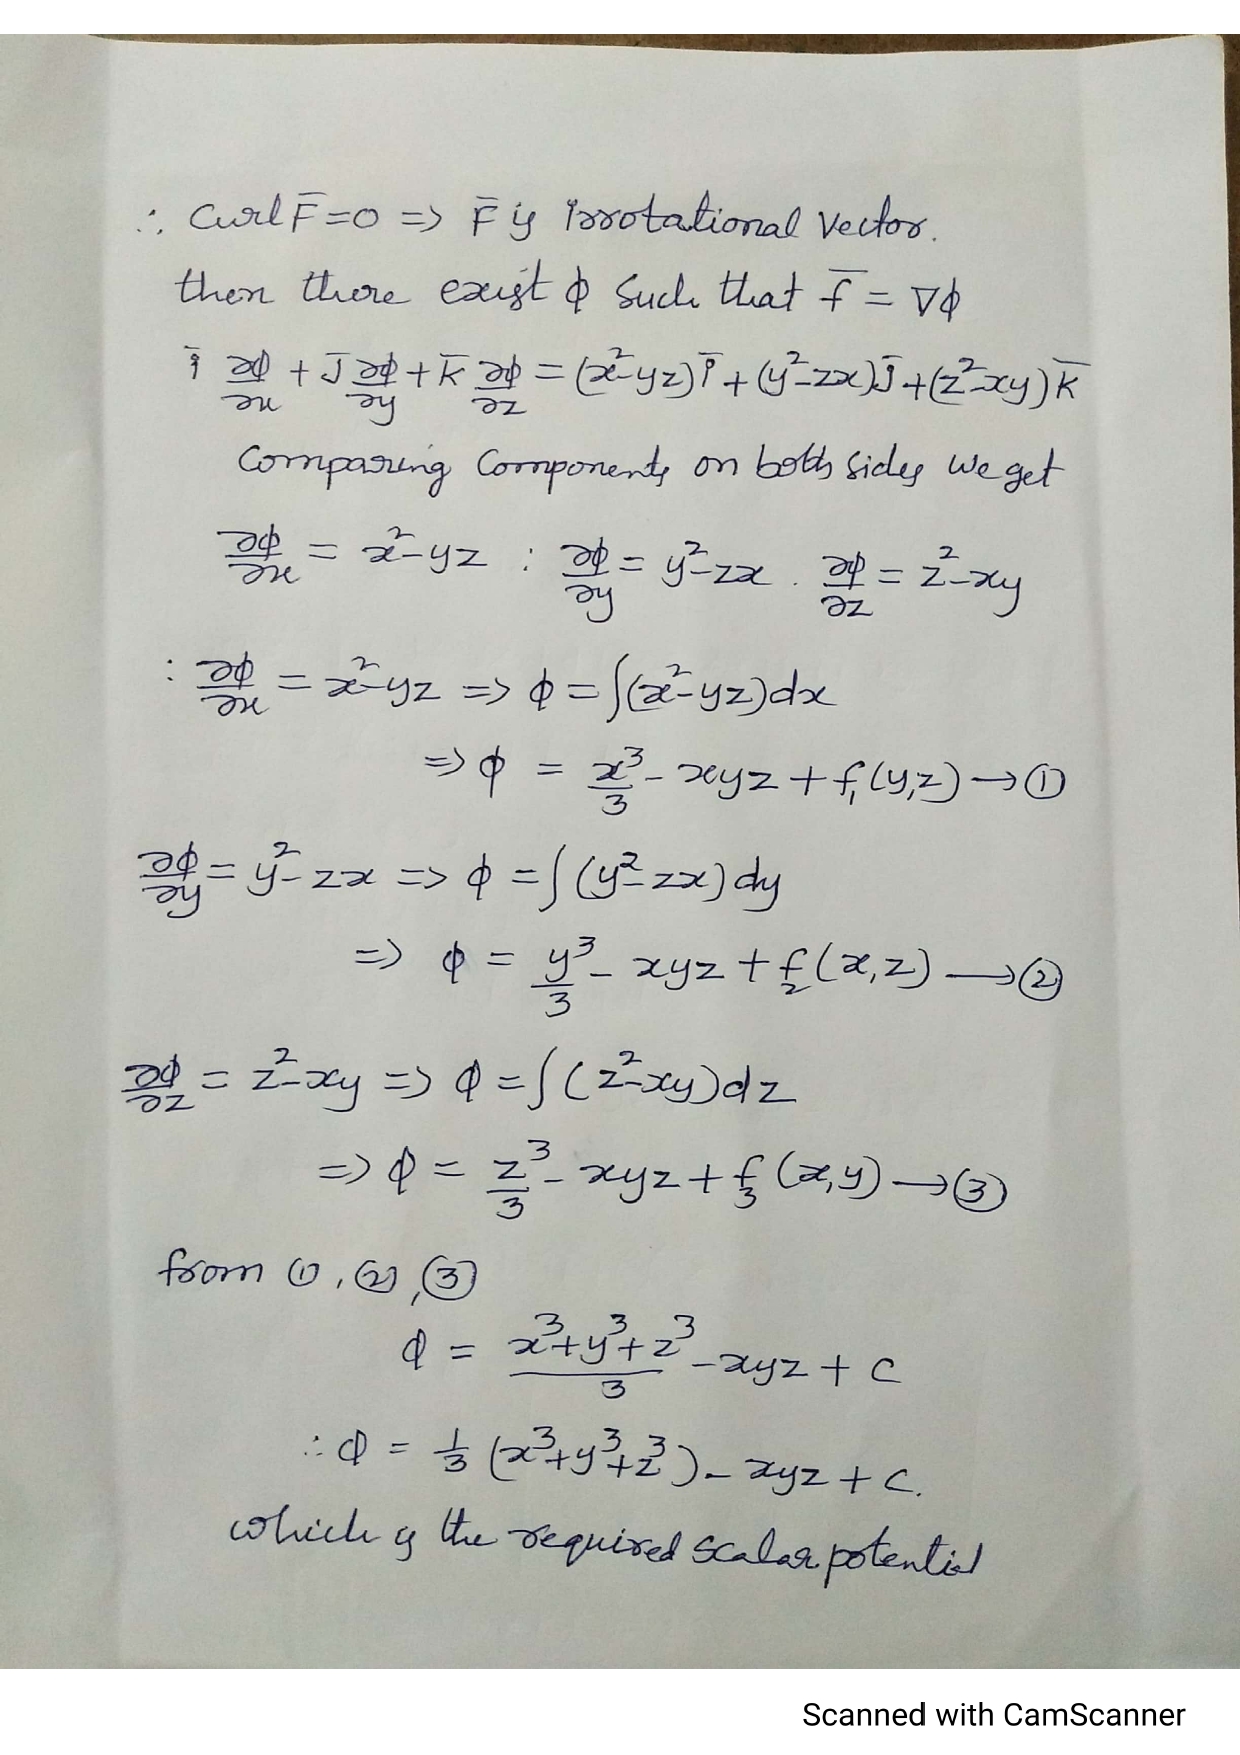 ∴ Curl F̄ = 0 => F̄ is irrotational Vector.
then there exist ϕ Such that f̄ = ∇ϕ
ī ∂ϕ/∂x + j̄ ∂ϕ/∂y + k̄ ∂ϕ/∂z = (x²-yz)ī + (y²-zx)j̄ + (z²-xy)k̄
Comparing Components on both sides we get
∂ϕ/∂x = x²-yz : ∂ϕ/∂y = y²-zx . ∂ϕ/∂z = z²-xy
: ∂ϕ/∂x = x²-yz => ϕ = ∫(x²-yz)dx
=> ϕ = x³/3 - xyz + f₁(y,z) → ①
∂ϕ/∂y = y²-zx => ϕ = ∫(y²-zx)dy
=> ϕ = y³/3 - xyz + f₂(x,z) → ②
∂ϕ/∂z = z²-xy => ϕ = ∫(z²-xy)dz
=> ϕ = z³/3 - xyz + f₃(x,y) → ③
from ①, ②, ③
ϕ = (x³+y³+z³)/3 - xyz + c
∴ ϕ = 1/3 (x³+y³+z³) - xyz + c.
which is the required scalar potential
Scanned with CamScanner